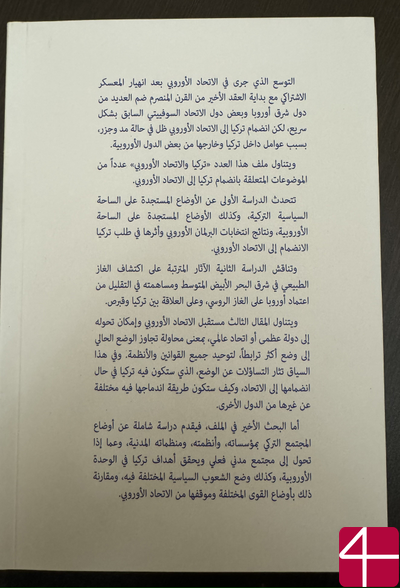 التوسع الذي جرى في الاتحاد الأوروبي بعد انهيار المعسكر
الاشتراكي مع بداية العقد الأخير من القرن المنصرم ضم العديد من
دول شرق أوروبا وبعض دول الاتحاد السوفييتي السابق بشكل
سريع، لكن انضمام تركيا إلى الاتحاد الأوروبي ظل في حالة مد وجزر،
بسبب عوامل داخل تركيا وخارجها من بعض الدول الأوروبية.
ويتناول ملف هذا العدد «تركيا والاتحاد الأوروبي» عدداً من
الموضوعات المتعلقة بانضمام تركيا إلى الاتحاد الأوروبي.
تتحدث الدراسة الأولى عن الأوضاع المستجدة على الساحة
السياسية التركية، وكذلك الأوضاع المستجدة على الساحة
الأوروبية، ونتائج انتخابات البرلمان الأوروبي وأثرها في طلب تركيا
الانضمام إلى الاتحاد الأوروبي.
وتناقش الدراسة الثانية الآثار المترتبة على اكتشاف الغاز
الطبيعي في شرق البحر الأبيض المتوسط ومساهمته في التقليل من
اعتماد أوروبا على الغاز الروسي، وعلى العلاقة بين تركيا وقبرص.
ويتناول المقال الثالث مستقبل الاتحاد الأوروبي وإمكان تحوله
إلى دولة عظمى أو اتحاد عالمي، بمعنى محاولة تجاوز الوضع الحالي
إلى وضع أكثر ترابطاً، لتوحيد جميع القوانين والأنظمة. وفي هذا
السياق تثار التساؤلات عن الوضع، الذي ستكون فيه تركيا في حال
انضمامها إلى الاتحاد، وكيف ستكون طريقة اندماجها فيه مختلفة
عن غيرها من الدول الأخرى.
أما البحث الأخير في الملف، فيقدم دراسة شاملة عن أوضاع
المجتمع التركي بمؤسساته، وأنظمته، ومنظماته المدنية، وعما إذا
تحول إلى مجتمع مدني فعلي ويحقق أهداف تركيا في الوحدة
الأوروبية، وكذلك وضع الشعوب السياسية المختلفة فيه، ومقارنة
ذلك بأوضاع القوى المختلفة وموقفها من الاتحاد الأوروبي.
4